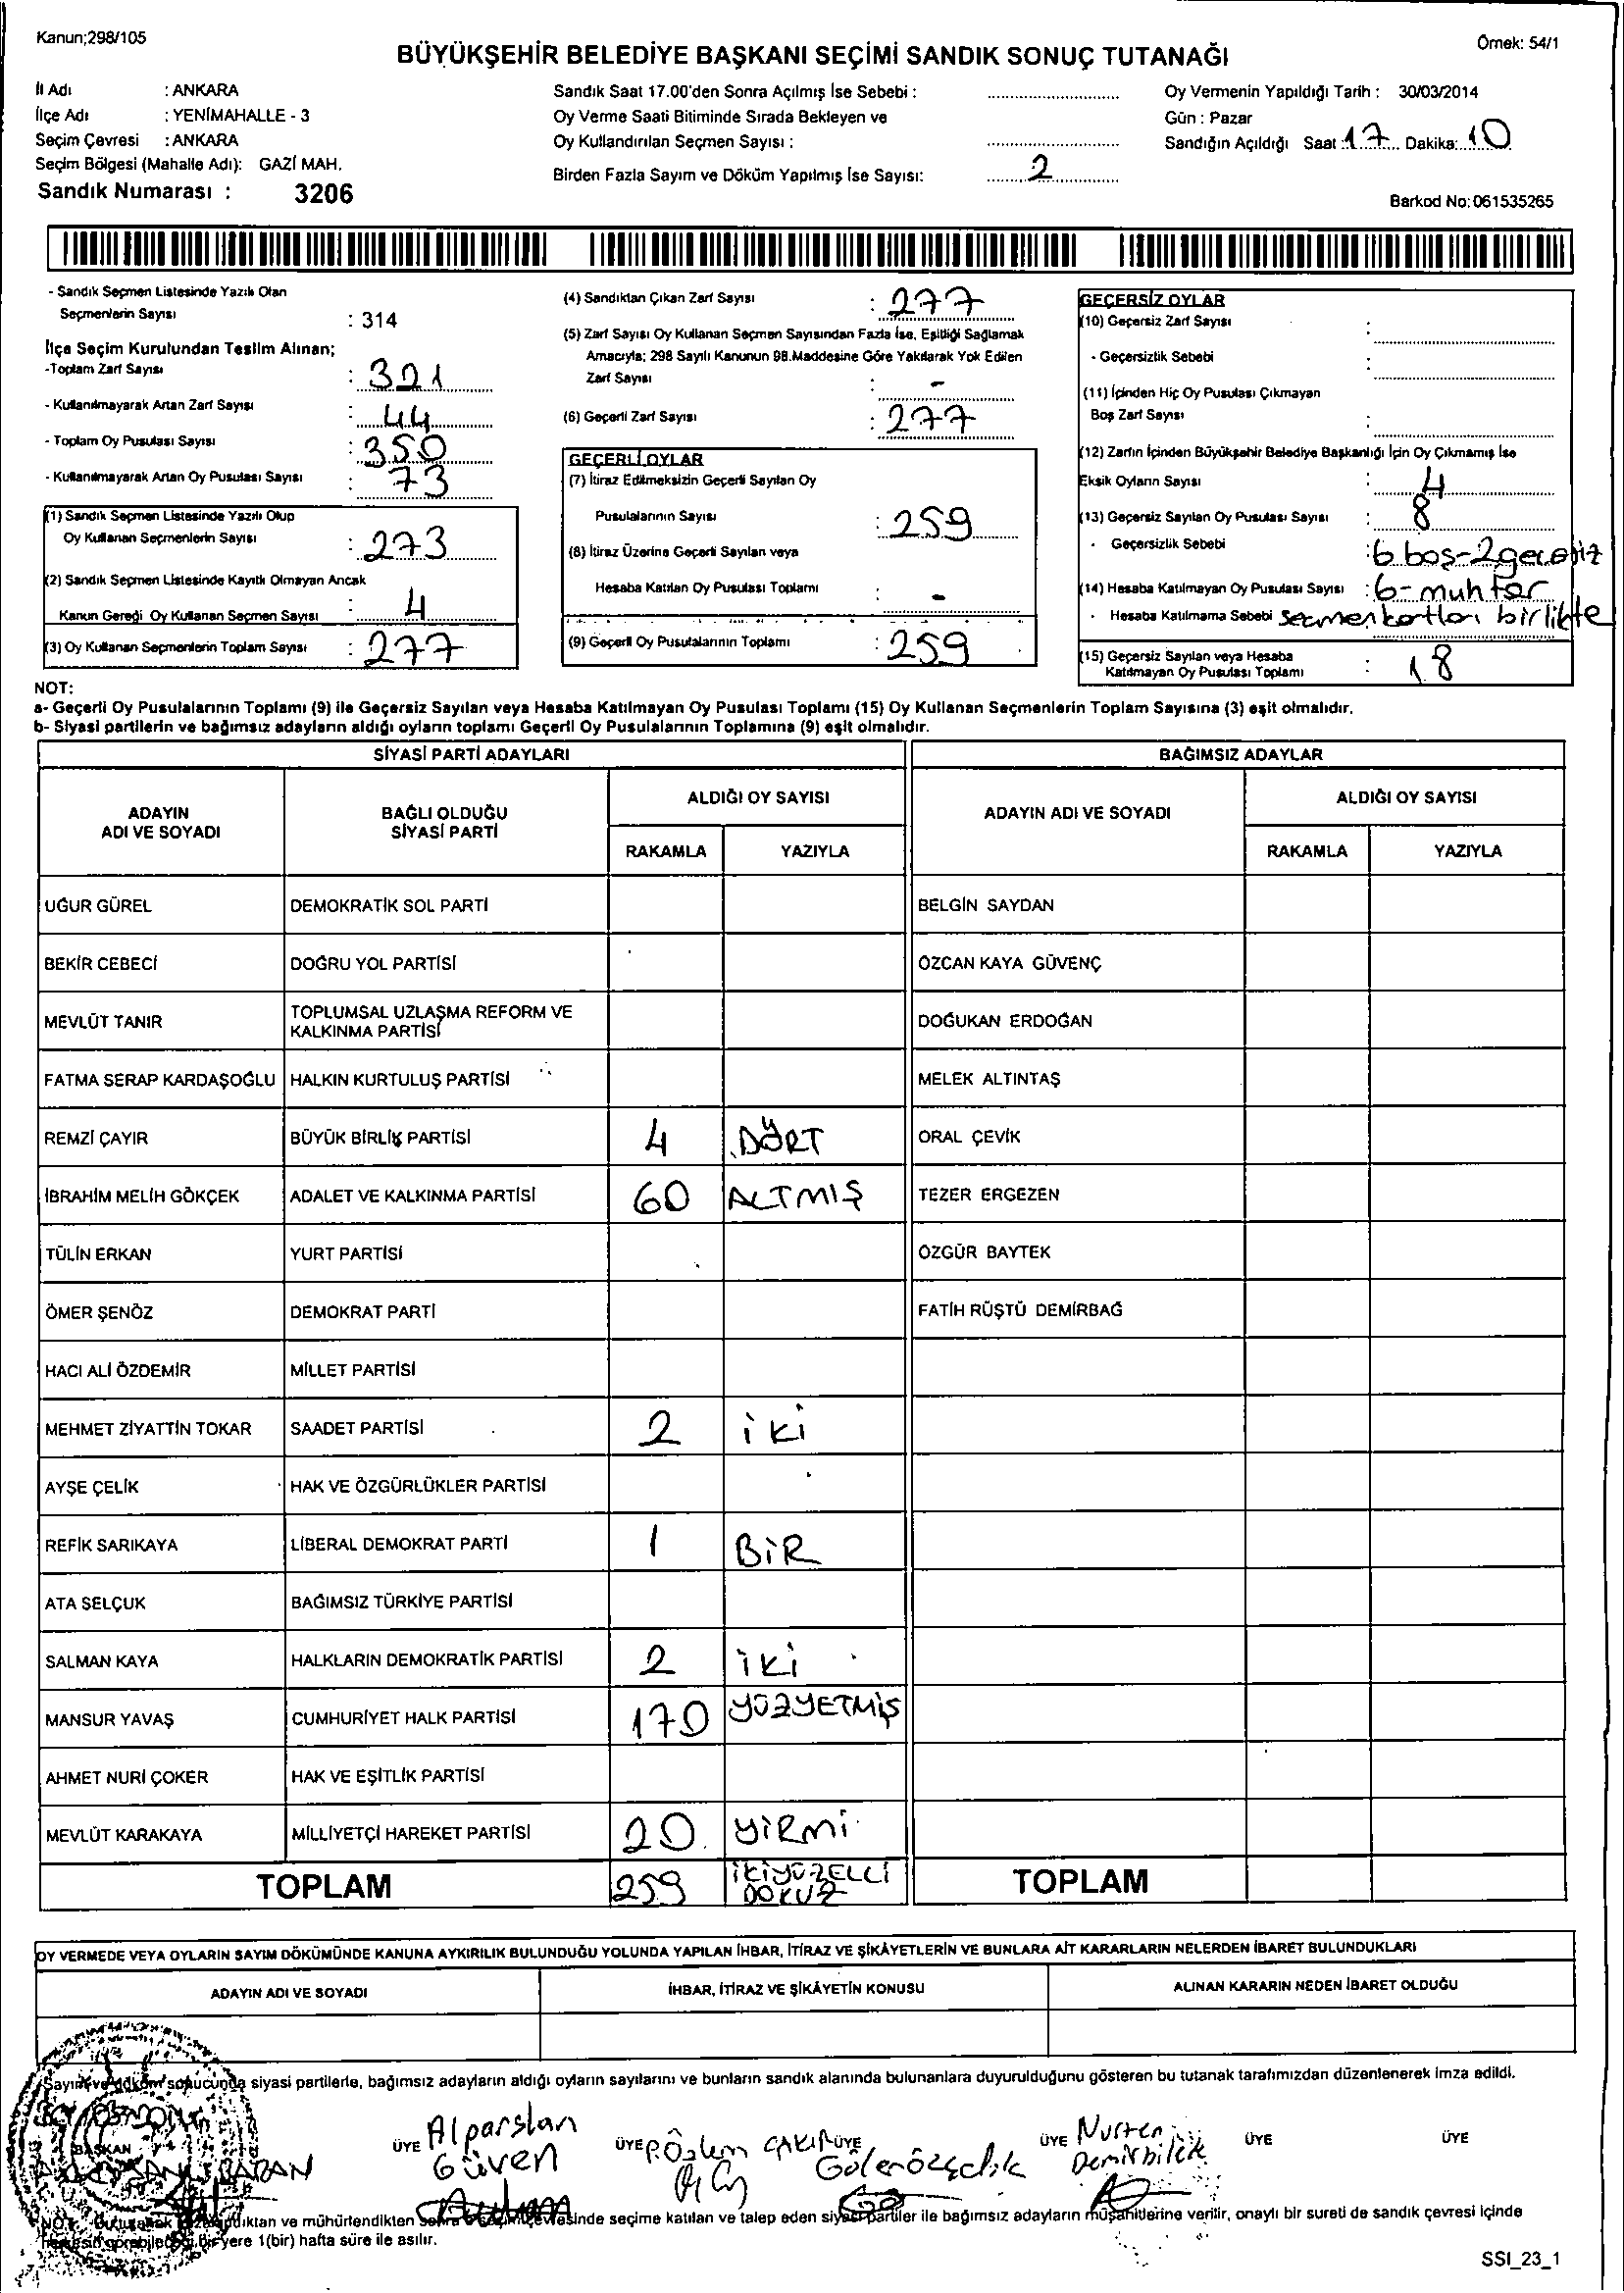 Kanun;298/105
Örnek: 54/1
BÜYÜKŞEHİR BELEDİYE BAŞKANI SEÇİMİ SANDIK SONUÇ TUTANAĞI
İl Adı : ANKARA
İlçe Adı : YENİMAHALLE - 3
Seçim Çevresi : ANKARA
Seçim Bölgesi (Mahalle Adı): GAZİ MAH.
Sandık Numarası : 3206
Sandık Saat 17.00'den Sonra Açılmış İse Sebebi :
Oy Verme Saati Bitiminde Sırada Bekleyen ve
Oy Kullandırılan Seçmen Sayısı :
Birden Fazla Sayım ve Döküm Yapılmış İse Sayısı: 2
Oy Vermenin Yapıldığı Tarih : 30/03/2014
Gün : Pazar
Sandığın Açıldığı Saat : 17 Dakika: 10
Barkod No: 061535265
- Sandık Seçmen Listesinde Yazılı Olan
Seçmenlerin Sayısı : 314
İlçe Seçim Kurulundan Teslim Alınan;
-Toplam Zarf Sayısı : 321
- Kullanılmayarak Artan Zarf Sayısı : 44
- Toplam Oy Pusulası Sayısı : 350
- Kullanılmayarak Artan Oy Pusulası Sayısı : 73
(1) Sandık Seçmen Listesinde Yazılı Olup
Oy Kullanan Seçmenlerin Sayısı : 273
(2) Sandık Seçmen Listesinde Kayıtlı Olmayan Ancak
Kanun Gereği Oy Kullanan Seçmen Sayısı : 4
(3) Oy Kullanan Seçmenlerin Toplam Sayısı : 277
(4) Sandıktan Çıkan Zarf Sayısı : 277
(5) Zarf Sayısı Oy Kullanan Seçmen Sayısından Fazla İse, Eşitliği Sağlamak
Amacıyla; 298 Sayılı Kanunun 98.Maddesine Göre Yakılarak Yok Edilen
Zarf Sayısı : -
(6) Geçerli Zarf Sayısı : 277
GEÇERLİ OYLAR
(7) İtiraz Edilmeksizin Geçerli Sayılan Oy
Pusulalarının Sayısı : 259
(8) İtiraz Üzerine Geçerli Sayılan veya
Hesaba Katılan Oy Pusulası Toplamı : -
(9) Geçerli Oy Pusulalarının Toplamı : 259
GEÇERSİZ OYLAR
(10) Geçersiz Zarf Sayısı :
- Geçersizlik Sebebi :
(11) İçinden Hiç Oy Pusulası Çıkmayan
Boş Zarf Sayısı :
(12) Zarfın İçinden Büyükşehir Belediye Başkanlığı İçin Oy Çıkmamış İse
Eksik Oyların Sayısı : 4
(13) Geçersiz Sayılan Oy Pusulası Sayısı : 8
- Geçersizlik Sebebi : 6 boş-2 geçersiz
(14) Hesaba Katılmayan Oy Pusulası Sayısı : 6-muhtar
- Hesaba Katılmama Sebebi seçmen kartları birlikte
(15) Geçersiz Sayılan veya Hesaba
Katılmayan Oy Pusulası Toplamı : 18
NOT:
a- Geçerli Oy Pusulalarının Toplamı (9) ile Geçersiz Sayılan veya Hesaba Katılmayan Oy Pusulası Toplamı (15) Oy Kullanan Seçmenlerin Toplam Sayısına (3) eşit olmalıdır.
b- Siyasi partilerin ve bağımsız adayların aldığı oyların toplamı Geçerli Oy Pusulalarının Toplamına (9) eşit olmalıdır.
SİYASİ PARTİ ADAYLARI
BAĞIMSIZ ADAYLAR
ADAYIN
ADI VE SOYADI
BAĞLI OLDUĞU
SİYASİ PARTİ
ALDIĞI OY SAYISI
RAKAMLA YAZIYLA
ADAYIN ADI VE SOYADI
ALDIĞI OY SAYISI
RAKAMLA YAZIYLA
UĞUR GÜREL DEMOKRATİK SOL PARTİ BELGİN SAYDAN
BEKİR CEBECİ DOĞRU YOL PARTİSİ ÖZCAN KAYA GÜVENÇ
MEVLÜT TANIR TOPLUMSAL UZLAŞMA REFORM VE
KALKINMA PARTİSİ DOĞUKAN ERDOĞAN
FATMA SERAP KARDAŞOĞLU HALKIN KURTULUŞ PARTİSİ MELEK ALTINTAŞ
REMZİ ÇAYIR BÜYÜK BİRLİK PARTİSİ 4 DÖRT ORAL ÇEVİK
İBRAHİM MELİH GÖKÇEK ADALET VE KALKINMA PARTİSİ 60 ALTMIŞ TEZER ERGEZEN
TÜLİN ERKAN YURT PARTİSİ ÖZGÜR BAYTEK
ÖMER ŞENÖZ DEMOKRAT PARTİ FATİH RÜŞTÜ DEMİRBAĞ
HACI ALİ ÖZDEMİR MİLLET PARTİSİ
MEHMET ZİYATTİN TOKAR SAADET PARTİSİ 2 iKi
AYŞE ÇELİK HAK VE ÖZGÜRLÜKLER PARTİSİ
REFİK SARIKAYA LİBERAL DEMOKRAT PARTİ 1 BİR
ATA SELÇUK BAĞIMSIZ TÜRKİYE PARTİSİ
SALMAN KAYA HALKLARIN DEMOKRATİK PARTİSİ 2 iKi
MANSUR YAVAŞ CUMHURİYET HALK PARTİSİ 170 YÜZYETMİŞ
AHMET NURİ ÇOKER HAK VE EŞİTLİK PARTİSİ
MEVLÜT KARAKAYA MİLLİYETÇİ HAREKET PARTİSİ 20 YİRMİ
TOPLAM 259 İKİYÜZELLİ
DOKUZ
TOPLAM
OY VERMEDE VEYA OYLARIN SAYIM DÖKÜMÜNDE KANUNA AYKIRILIK BULUNDUĞU YOLUNDA YAPILAN İHBAR, İTİRAZ VE ŞİKÂYETLERİN VE BUNLARA AİT KARARLARIN NELERDEN İBARET BULUNDUKLARI
ADAYIN ADI VE SOYADI
İHBAR, İTİRAZ VE ŞİKÂYETİN KONUSU
ALINAN KARARIN NEDEN İBARET OLDUĞU
Sayım ve döküm sonucunda siyasi partilerle, bağımsız adayların aldığı oyların sayılarını ve bunların sandık alanında bulunanlara duyurulduğunu gösteren bu tutanak tarafımızdan düzenlenerek imza edildi.
BAŞKAN
ÜYE Alparslan
Güven
ÜYE P. Özlem ÇAKIR
ÜYE
ÜYE Nurten
Demirbilek
ÜYE
ÜYE
ve mühürlendikten sonra seçim çevresinde seçime katılan ve talep eden siyasi partiler ile bağımsız adayların müşahitlerine verilir, onaylı bir sureti de sandık çevresi içinde
herkesin görebileceği bir yere 1(bir) hafta süre ile asılır.
SSI_23_1